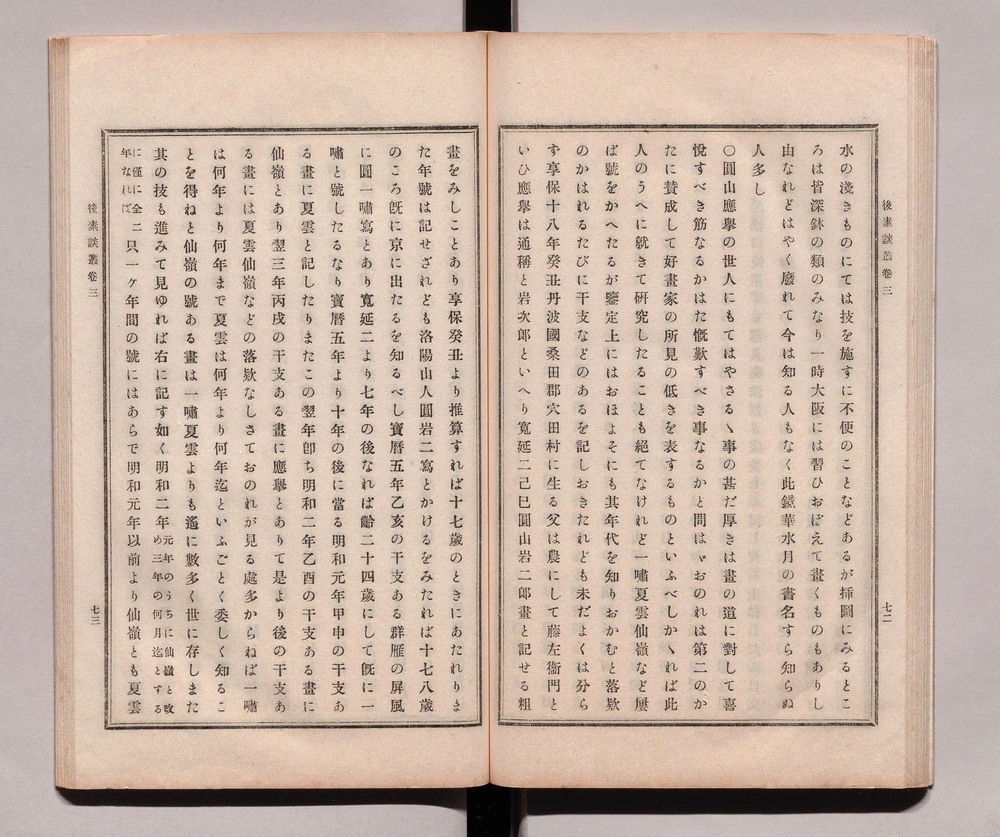 後素談叢卷三
七二
水の淺きものにては技を施すに不便のことなどあるが挿圖にみるとこ
ろは皆深鉢の類のみなり一時大阪には習ひおぼえて畫くものもありし
由なれどはやく廢れて今は知る人もなく此鏡華水月の書名すら知らぬ
人多し
〇圓山應擧の世人にもてはやさるゝ事の甚だ厚きは畫の道に對して喜
悅すべき筋なるかはた慨歎すべき事なるかと問はゞおのれは第二のか
たに賛成して好畫家の所見の低きを表するものといふべしかゝれば此
人のうへに就きて硏究したることも絕てなけれど一嘯夏雲仙嶺など屢
ば號をかへたるが鑒定上にはおほよそにも其年代を知りおかむと落欵
のかはれるたびに干支などのあるを記しおきたれども未だよくは分ら
ず享保十八年癸丑丹波國桑田郡穴田村に生る父は農にして藤左衞門と
いひ應擧は通稱と岩次郎といへり寬延二己巳圓山岩二郎畫と記せる粗
畫をみしことあり享保癸丑より推算すれば十七歲のときにあたれりま
た年號は記せざれども洛陽山人圓岩二寫とかけるをみたれば十七八歲
のころ旣に京に出たるを知るべし寶曆五年乙亥の干支ある群雁の屛風
に圓一嘯寫とあり寬延二より七年の後なれば齡二十四歲にして旣に一
嘯と號したるなり寶曆五年より十年の後に當る明和元年甲申の干支あ
る畫に夏雲と記したりまたこの翌年卽ち明和二年乙酉の干支ある畫に
仙嶺とあり翌三年丙戌の干支ある畫に應擧とありて是より後の干支あ
る畫には夏雲仙嶺などの落欵なしさておのれが見る處多からねば一嘯
は何年より何年まで夏雲は何年より何年迄といふごとく委しく知るこ
とを得ねと仙嶺の號ある畫は一嘯夏雲よりも遙に數多く世に存しまた
其の技も進みて見ゆれば右に記す如く明和二年元年のうちに仙嶺と改め三年の何月迄とする
に僅に全二年なれば只一ヶ年間の號にはあらで明和元年以前より仙嶺とも夏雲
後素談叢卷三
七三